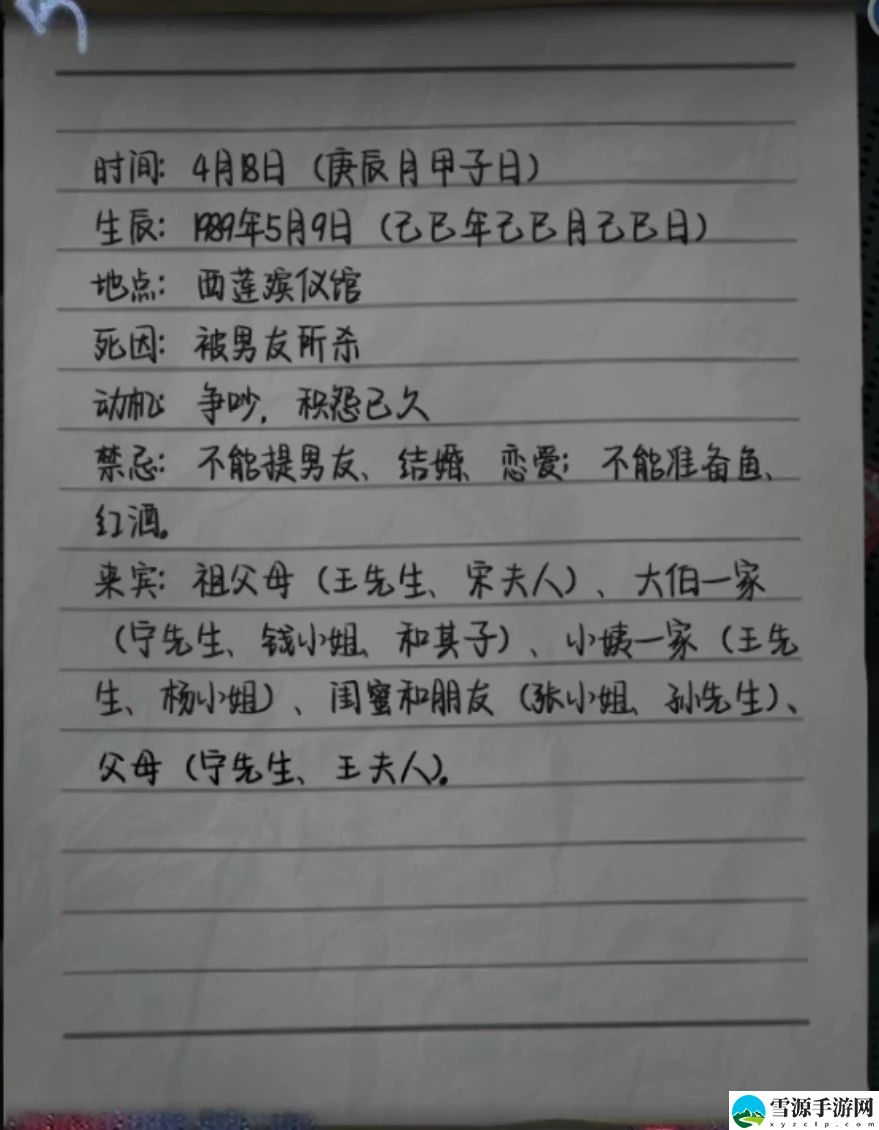 时间：4月18日（庚辰月甲子日）
生辰：1989年5月9日（己巳年己巳月己巳日）
地点：西莲殡仪馆
死因：被男友所杀
动机：争吵，积怨已久
禁忌：不能提男友、结婚、恋爱；不能准备鱼、
红酒。
来宾：祖父母（王先生、宋夫人）、大伯一家
（宁先生、钱小姐、和其子）、小姨一家（王先
生、杨小姐）、闺蜜和朋友（张小姐、孙先生）、
父母（宁先生、王夫人）。
雪源手游网
xyzclp.com